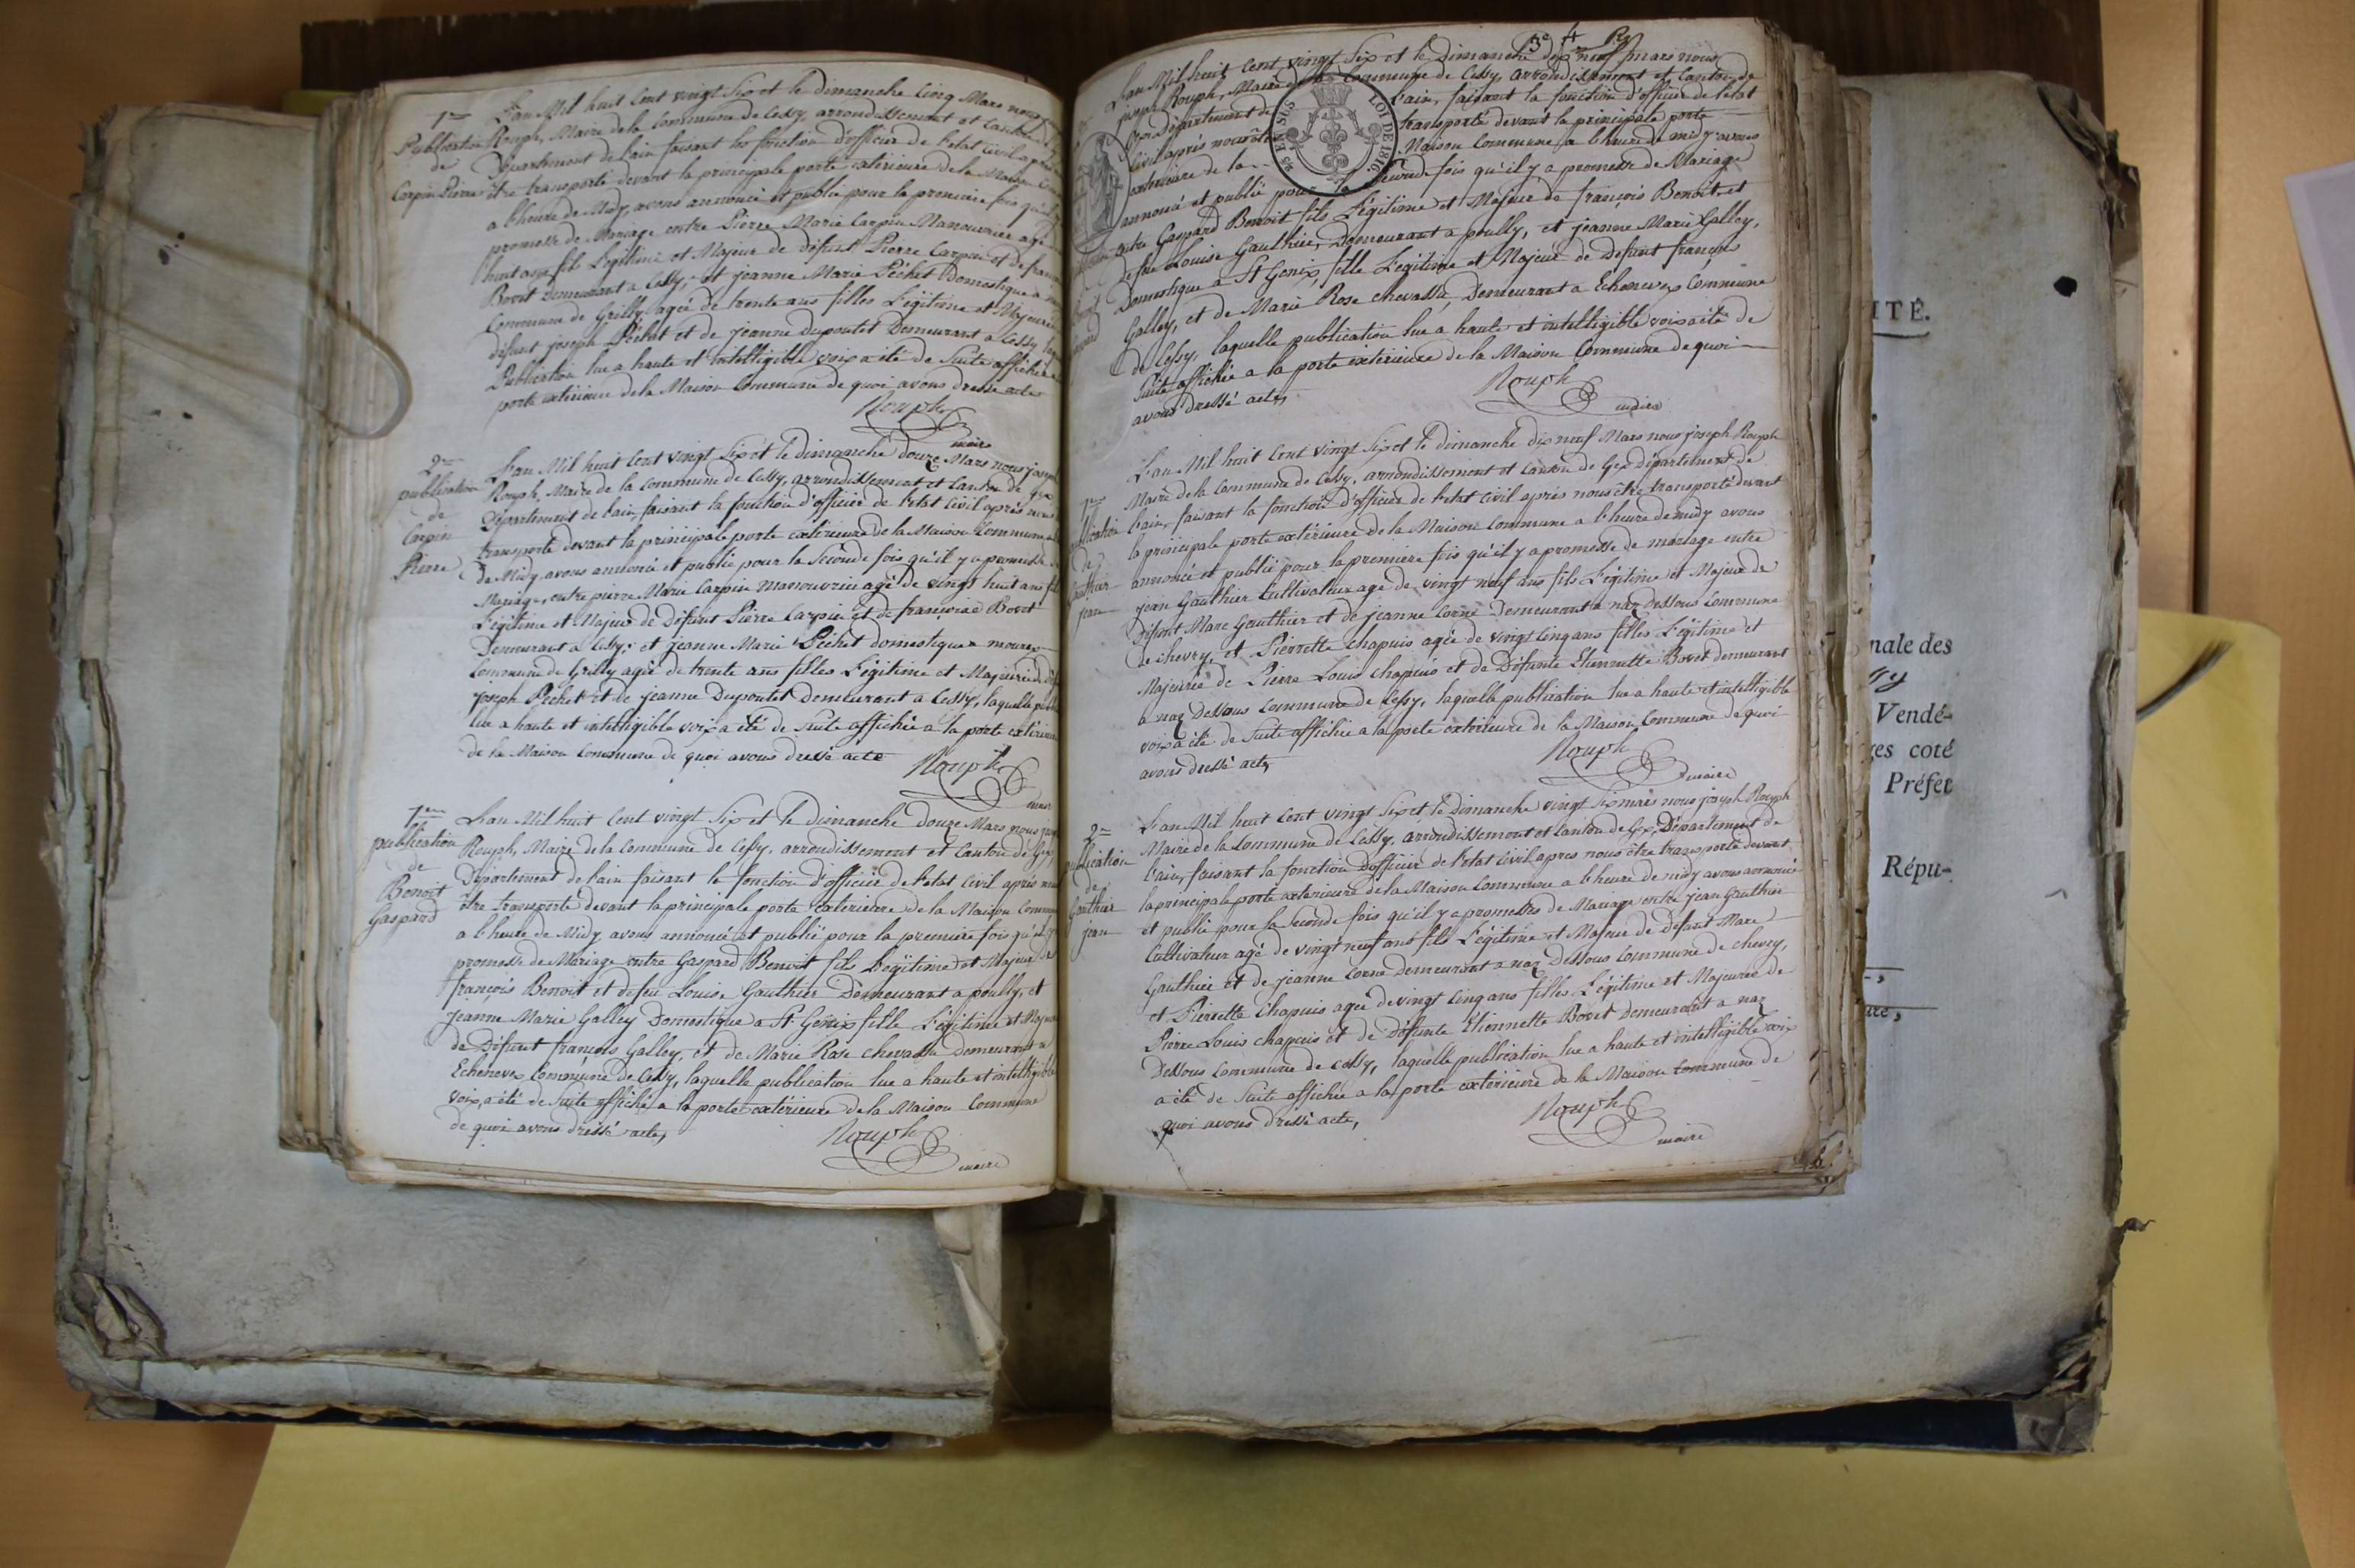 1re
Publication
de
Carpin Pierre
L'an Mil huit Cent vingt Six et le dimanche Cinq Mars nous
Rouph, Maire de la Commune de Cessy, arrondissement et Canton
Département de l'ain faisant les fonction d'officier de l'etat Civil après
être transporté devant la principale porte extérieure de la Maison
a l'heure de Midy, avons annoncé et publié pour la premiere fois qu'il
promesse de Mariage entre Pierre Marie Carpin Manouvrier agé
huit ans fils Légitime et Majeur de défunt Pierre Carpin et de
Bovet Demeurant a Cessy, et jeanne Marie Péchet Domestique a
Commune de Grilly agée de trente ans filles Légitime et Majeurée
défunt joseph Péchet et de jeanne Dupontet Demeurant a Cessy
Publication lue a haute et intelligible voix a été de Suite affichée
porte extérieure de la Maison Commune de quoi avons dressé acte
Rouph
maire
2me
publication
de
Carpin
Pierre
L'an Mil huit Cent vingt Six et le dimanche douze Mars nous joseph
Rouph, Maire de la Commune de Cessy, arrondissement et Canton de Gex
Département de l'ain, faisant la fonction d'officier de l'etat Civil après nous
transporté devant la principale porte extérieure de la Maison Commune
de Midy, avons annoncé et publié pour la Seconde fois qu'il y a promesse
Mariage, entre pierre Marie Carpin Manouvrier agé de vingt huit ans fils
Légitime et Majeur de Défunt Pierre Carpin et de françoise Bovet
Demeurant a Cessy, et jeanne Marie Péchet domestique a mourex
Commune de Grilly agée de trente ans filles Légitime et Majeurée de
joseph Péchet et de jeanne Dupontet demeurant a Cessy, laquelle
lue a haute et intelligible voix a été de Suite affichée a la porte extérieure
de la Maison Commune de quoi avons dressé acte
Rouph
maire
1re
publication
de
Benoit
Gaspard
L'an Mil huit Cent vingt Six et le dimanche douze Mars nous
Rouph, Maire de la Commune de Cessy, arrondissement et Canton de Gex,
Département de l'ain faisant le fonction d'officier de l'etat Civil après
être transporté devant la principale porte extérieure de la Maison
a l'heure de Midy avons annoncé et publié pour la premiere fois qu'il
promesse de Mariage entre Gaspard Benoit fils Légitime et Majeur de
françois Benoit et defeu Louise Gauthier Demeurant a poully, et
jeanne Marie Galley Domestique a St Genix fille Légitime et
de Défunt françois Galley, et de Marie Rose chevassu demeurant a
Echenevex Commune de Cessy, laquelle publication lue a haute et intelligible
voix, a été de Suite affiché a la porte extérieure de la Maison Commune
de quoi avons dressé acte,
Rouph
maire
3e
L'an Mil huit Cent vingt Six et le dimanche dix neuf mars nous
joseph Rouph, Maire de la Commune de Cessy, arrondissement et Canton de
Département de l'ain, faisant la fonction d'officier de l'etat
Civil après nous être transporté devant la principale porte
extérieure de la Maison Commune a l'heure de midy avons
annoncé et publié pour la Seconde fois qu'il y a promesse de Mariage
entre Gaspard Benoit fils Légitime et Majeur de françois Benoit et
defeu Louise Gauthier, Demeurant a poully, et jeanne Marie Galley,
Domestique a St Genix, fille Légitime et Majeur de Défunt françois
Galley, et de Marie Rose chevassu, Demeurant a Echenevex Commune
de Cessy, laquelle publication lue a haute et intelligible voix a été de
Suite affichée a la porte extérieure de la Maison Commune de quoi
avons dressé acte,
LOI DE 1816.
EN SUS
Rouph
maire
de
Gauthier
jean
L'an Mil huit Cent vingt Six et le dimanche dix neuf Mars nous joseph Rouph
Maire de la Commune de Cessy, arrondissement et Canton de Gex département de
l'ain, faisant la fonction d'officier de l'etat Civil après nous être transporté devant
la principale porte extérieure de la Maison Commune a l'heure de midy avons
annoncé et publié pour la premiere fois qu'il y a promesse de mariage entre
jean Gauthier Cultivateur agé de vingt neuf ans fils Légitime et Majeur de
Défunt Marc Gauthier et de jeanne Corne Demeurant a naz Dessous Commune
de chevry, et Pierrette chapuis agée de vingt Cinq ans filles Légitime et
Majeurée de Pierre Louis chapuis et de Défunte Etiennette Bovet demeurant
a naz Dessous Commune de Cessy, laquelle publication lue a haute et intelligible
voix a été de Suite affichée a la porte extérieure de la Maison Commune de quoi
avons dressé acte,
Rouph
maire
2me
publication
de
Gauthier
jean
L'an Mil huit Cent vingt Six et le dimanche vingt Six mars nous joseph Rouph
Maire de la Commune de Cessy, arrondissement et Canton de Gex, Département de
l'ain, faisant la fonction d'officier de l'etat Civil après nous être transporté devant
la principale porte extérieure de la Maison Commune a l'heure de midy avons annoncé
et publié pour la Seconde fois qu'il y a promesses de Mariage entre jean Gauthier
Cultivateur agé de vingt neuf ans fils Légitime et Majeur de Défunt Marc
Gauthier et de jeanne Corne demeurant a naz Dessous Commune de chevry,
et Pierrette Chapuis agée de vingt Cinq ans filles Légitime et Majeurée de
Pierre Louis chapuis et de Défunte Etiennette Bovet demeurant a naz
Dessous Commune de Cessy, laquelle publication lue a haute et intelligible voix
a été de Suite affichée a la porte extérieure de la Maison Commune de
quoi avons dressé acte,
Rouph
maire
ITÉ.
nale des
Vendé-
ges coté
Préfet
Répu-